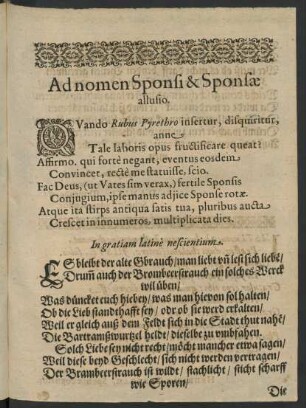 Ad nomen Sponsi & Sponsæ
allusio.
QVando Rubus Pyrethro insertur, disquiritur,
anne
Tale laboris opus fructificare queat?
Affirmo, qui fortè negant, eventus eosdem
Convincet, rectè me statuisse, scio.
Fac Deus, (ut Vates sim verax,) fertile Sponsis
Conjugium, ipse manus adjice Sponse rotæ.
Atque ita stirps antiqua satis tua, pluribus aucta
Crescet in innumeros, multiplicata dies.
In gratiam latinè nescientium.
ES bleibt der alte Gbrauch/man liebt vñ lest sich liebẽ/
Drum̃ auch der Brombeerstrauch ein solches Werck
wil üben/
Was düncket euch hieben/ was man hievon sol halten/
Ob die Lieb standthafft sey/ oder ob sie werd erkalten/
Weil er gleich auß dem Feldt sich in die Stadt thut nahẽ/
Die Bartramßwurtzel heldt/ dieselbe zu umbfahen.
Solch Liebe sey nicht recht/möcht mancher etwa sagen/
Weil diese beyd Geschlecht/ sich nicht werden vertragen/
Der Brambeerstrauch ist wildt/ stachlicht/ sticht scharff
wie Sporen/
Die